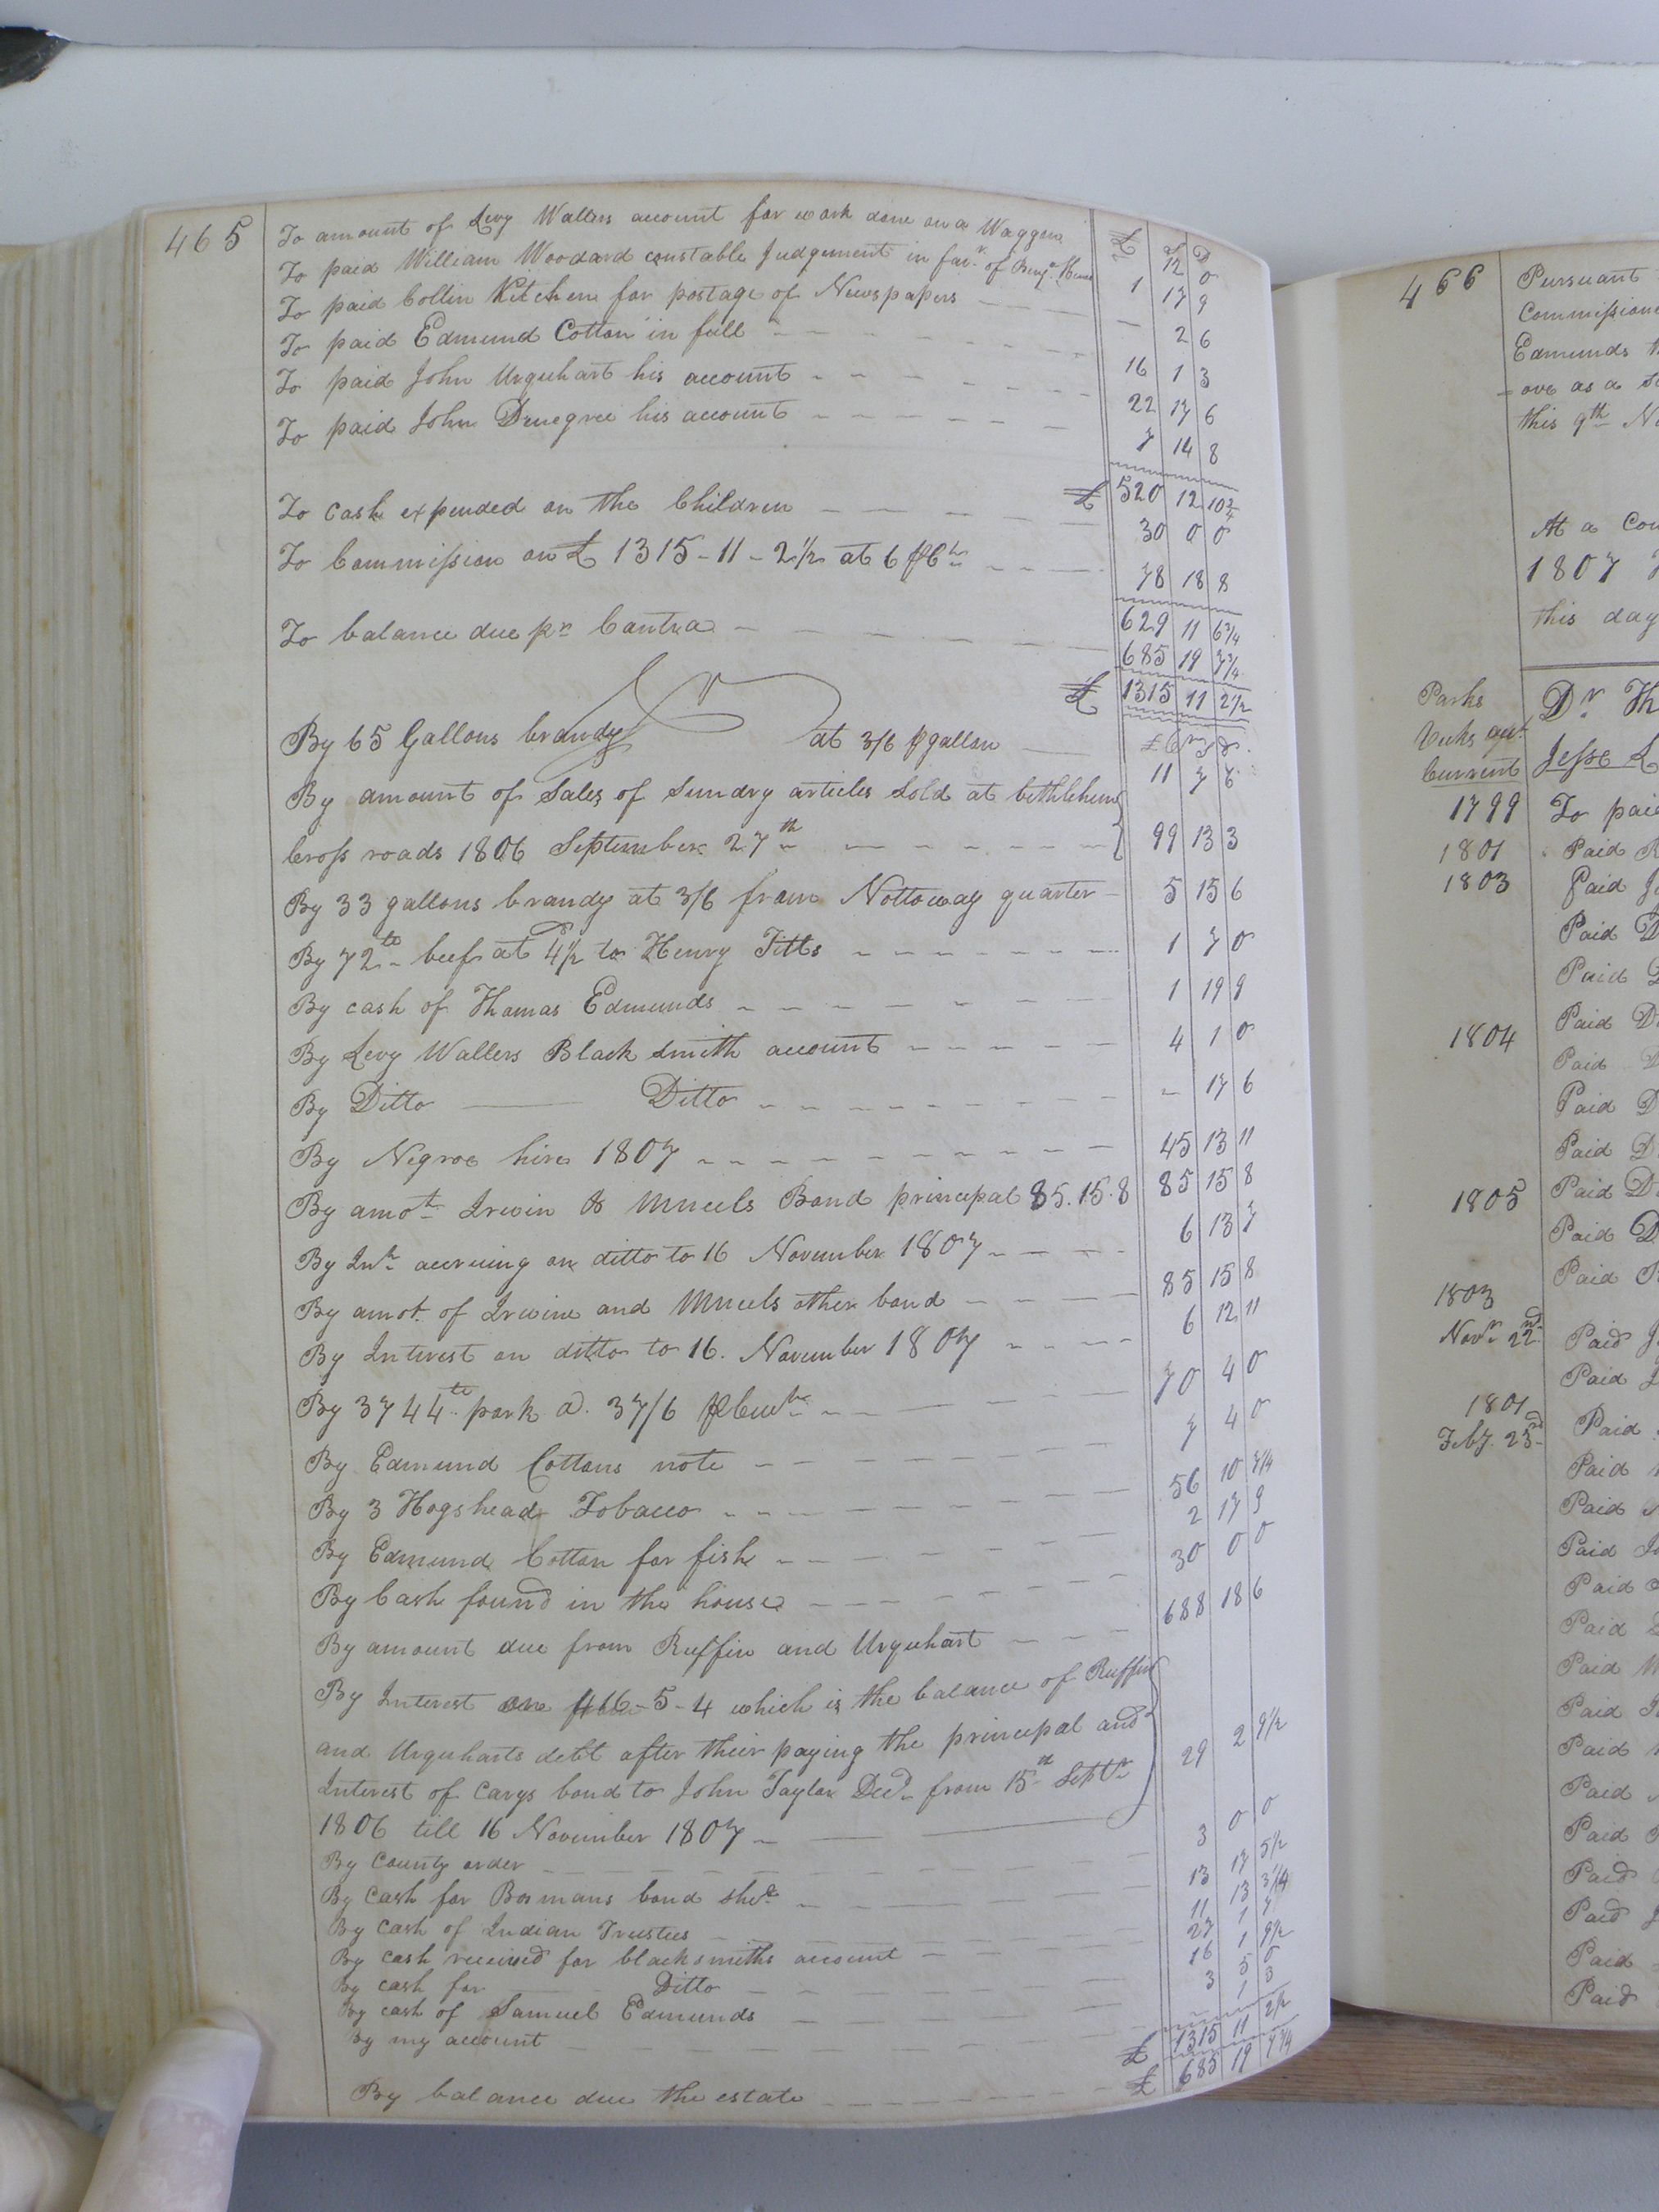 465
£ S D
To amount of Levy Wallers account for work done on a Waggon 12 0
To paid William Woodard constable Judgement in favr. of Benjn. 1 17 9
To paid Collin Kitchen for postage of Newspapers — 2 6
To paid Edmund Cotton in full 16 1 3
To paid John Urquhart his account 22 17 6
To paid John Denegree his account 7 14 8
£ 520 12 10 3/4
To cash expended on the Children 30 0 0
To Commission on £ 1315-11-2 1/2 at 6 78 18 8
629 11 6 3/4
To balance due pr Contra 685 19 7 3/4
£ 1315 11 2 1/2
By 65 Gallons brandy at 3/6 gallon 11 7 6
By amount of Sales of Sundry articles Sold at bethlehem
Cross roads 1806 September 27th 99 13 3
By 33 gallons brandy at 3/6 from Nottoway quarter 5 15 6
By 72 lb beef at 4 1/2 to Henry Titts 1 7 0
By cash of Thomas Edmunds 1 19 9
By Levy Wallers Black smith account 4 1 0
By Ditto Ditto - 17 6
By Negroe hire 1807 45 13 11
By amot. Irwin & Mneels Bond principal 85.15.8 85 15 8
By Int. accruing on ditto to 16 November 1807 6 13 7
By amot. of Irvine and Mneels other bond 85 15 8
By Interest on ditto to 16. November 1807 6 12 11
By 3744 lb. pork @. 37/6 70 4 0
By Edmund Cottons note 7 4 0
By 3 Hogshead Tobacco 56 10 7/4
By Edmund Cotton for fish 2 17 9
By Cash found in the house 30 0 0
By amount due from Ruffin and Urquhart 688 18 6
By Interest one 466-5-4 which is the balance of Ruffin
and Urquharts debt after their paying the principal and
Interest of Carys bond to John Taylor Decd. from 15th Septr 29 2 9 1/2
1806 till 16 November 1807
By County order 3 0 0
By Cash for Bosmans bond 13 17 5 1/2
By Cash of Indian Trustees 11 13 3 1/4
By cash received for blacksmiths account 27 1 7
By cash for Ditto 16 1 9 1/2
By cash of Samuel Edmunds 3 5 0
By my account 1 3
£ 1315 11 2 1/2
By balance due the estate £ 685 19 7 3/4
466
Pursuant
Commissione
Edmunds
- ove as a
this 9th
At a Cou
1807
this day
Parks
Current
Dr. Th
Jesse L
1799 To paid
1801 Paid R
1803 Paid
Paid D
Paid
1804 Paid D
Paid D
Paid D
Paid D
1805 Paid D
Paid D
Paid
1803
Novr 22nd Paid J
Paid
1801
Feby. 25 Paid
Paid
Paid
Paid
Paid
Paid
Paid
Paid
Paid
Paid
Paid
Paid
Paid
Paid
Paid